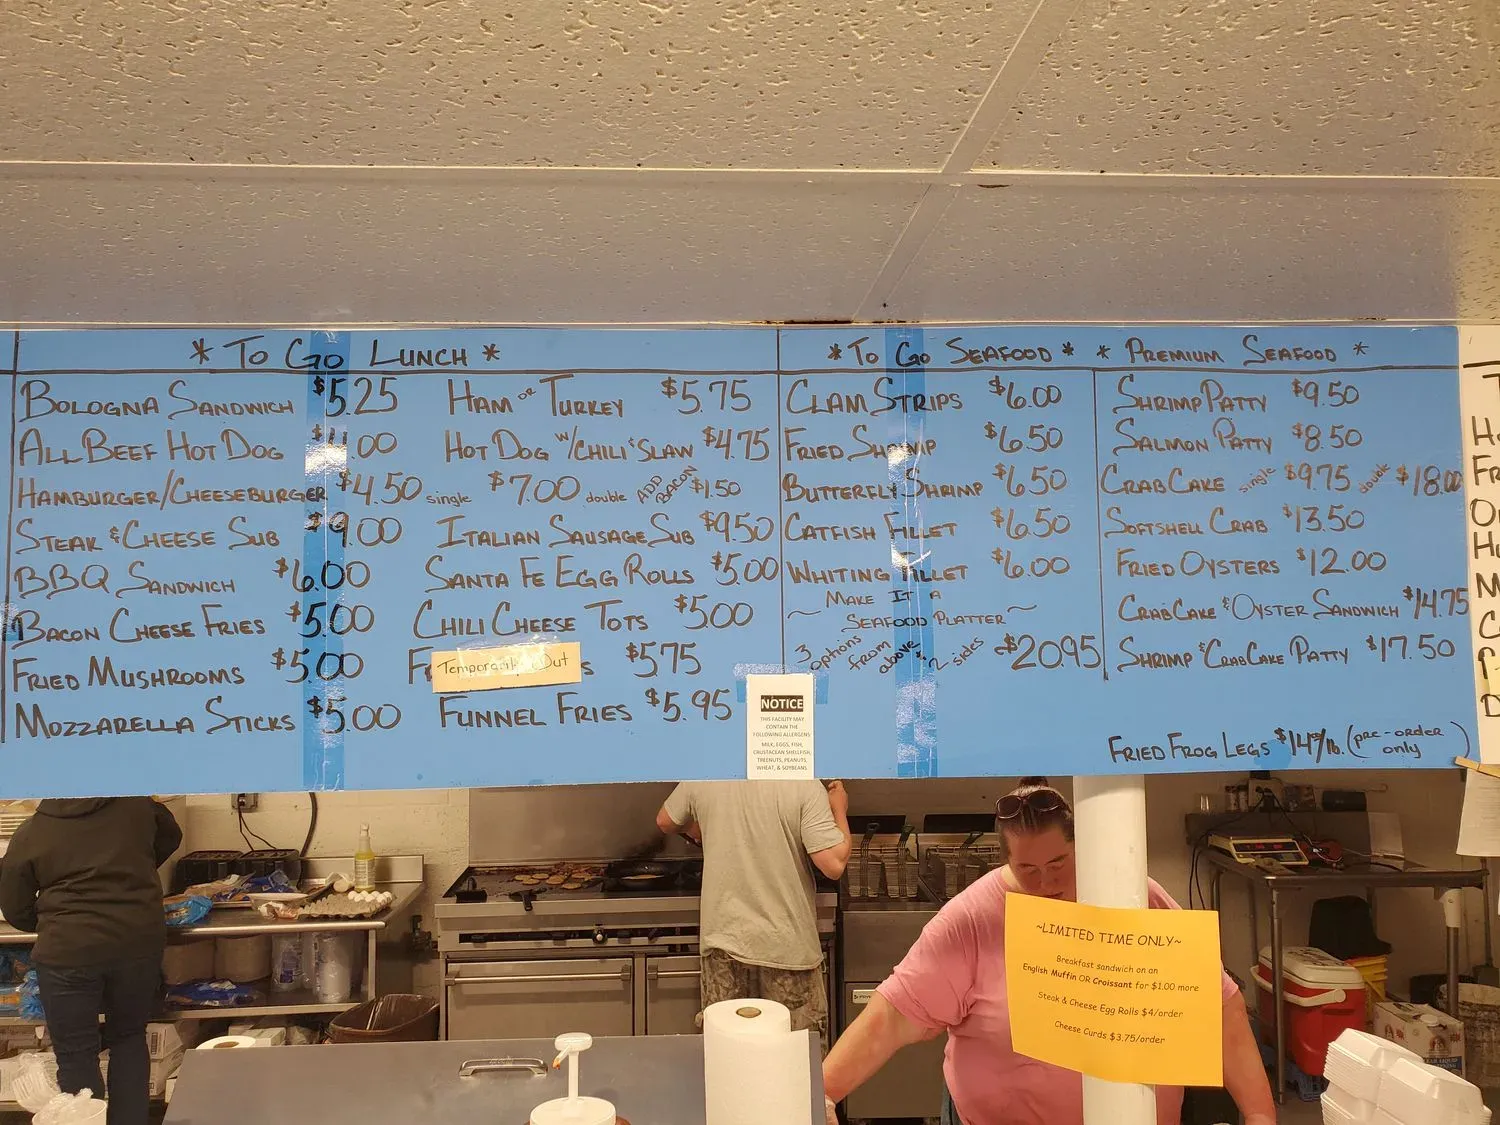 * To Go Lunch *
Bologna Sandwich $5.25
Ham or Turkey $5.75
All Beef Hot Dog .00
Hot Dog w/ Chili & Slaw $4.75
Hamburger/Cheeseburger $4.50 single $7.00 double Add Bacon $1.50
Steak & Cheese Sub $9.00
Italian Sausage Sub $9.50
BBQ Sandwich $6.00
Santa Fe Egg Rolls $5.00
Bacon Cheese Fries $5.00
Chili Cheese Tots $5.00
Fried Mushrooms $5.00
Temporarily Out
$5.75
Mozzarella Sticks $5.00
Funnel Fries $5.95
* To Go Seafood *
Clam Strips $6.00
Fried Shrimp $6.50
Butterfly Shrimp $6.50
Catfish Fillet $6.50
Whiting Fillet $6.00
Make It A
~ Seafood Platter ~
3 options from above & 2 sides $20.95
* Premium Seafood *
Shrimp Patty $9.50
Salmon Patty $8.50
Crab Cake single $9.75 double $18.00
Softshell Crab $13.50
Fried Oysters $12.00
Crab Cake & Oyster Sandwich $14.75
Shrimp & Crab Cake Patty $17.50
Fried Frog Legs /lb. (pre-order only)
NOTICE
THIS FACILITY MAY
CONTAIN THE
FOLLOWING ALLERGENS
MILK, EGGS, FISH,
CRUSTACEAN SHELLFISH,
TREENUTS, PEANUTS,
WHEAT, & SOYBEANS
~LIMITED TIME ONLY~
Breakfast sandwich on an
English Muffin OR Croissant for $1.00 more
Steak & Cheese Egg Rolls $4/order
Cheese Curds $3.75/order